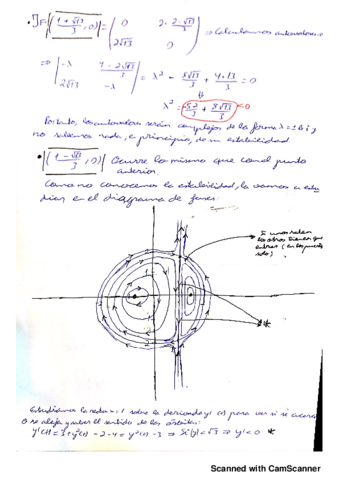 · J F ( (1+√13)/3 , 0 ) = ( 0  2· 2-√13/3 ; 2√13  0 ) ⇒ Calculamos autovalores
⇒ | -λ  4-2√13/3 ; 2√13  -λ | = λ² - 8√13/3 + 4·13/3 = 0
λ² = -52/3 + 8√13/3 < 0
Por tanto, los autovalores serán complejos de la forma λ = ± bi y
no sabemos nada, a principio, de su estabilidad.
· ( (1-√13)/3 , 0 ) Ocurre lo mismo que con el punto
anterior.
Como no conocemos la estabilidad, la vamos a estu
diar en el diagrama de fases:
Si unos salen
los otros tienen que
entrar
Estudiamos la recta x=1 sobre la derivada y'(t) para ver si se acerca
o se aleja y saber el sentido de las órbitas:
y'(t) = 3 + y²(t) - 2 - 4 = y²(t) - 3 ⇒ Si |y| < √3 ⇒ y' < 0 *
Scanned with CamScanner